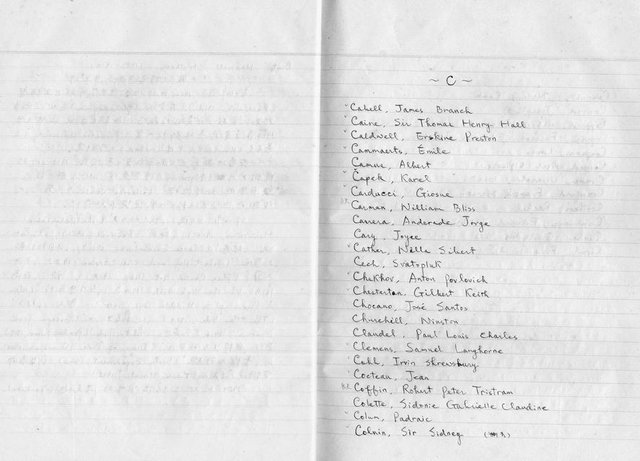 ~ C ~
Cabell, James Branch
Caine, Sir Thomas Henry Hall
Caldwell, Erskine Preston
Cammaerts, Émile
Camus, Albert
Čapek, Karel
Carducci, Giosue
Carman, William Bliss
Carrera, Andrade Jorge
Cary, Joyce
Cather, Willa Sibert
Cech, Svatopluk
Chekhov, Anton Pavlovich
Chesterton, Gilbert Keith
Chocano, José Santos
Churchill, Winston
Claudel, Paul Louis Charles
Clemens, Samuel Langhorne
Cobb, Irvin Shrewsbury
Cocteau, Jean
Coffin, Robert Peter Tristram
Colette, Sidonie Gabrielle Claudine
Colum, Padraic
Colvin, Sir Sidney